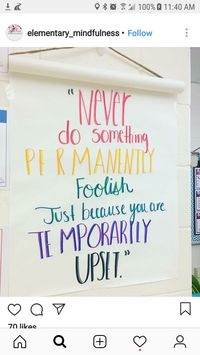 100% 11:40 AM
elementary_mindfulness • Follow
"NEVER
do something
PERMANENTLY
Foolish
Just because you are
TEMPORARILY
UPSET."
70 likes